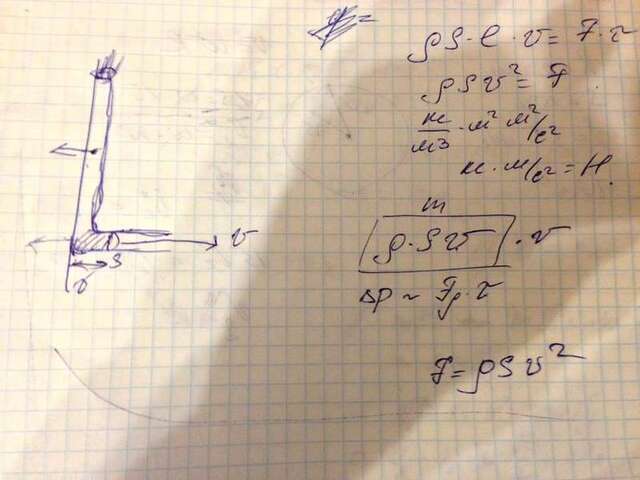 ρS·ℓ·v = F·τ
ρSv² = F
кг/м3 · м² м²/с²
кг · м/с² = Н.
m
ρ·Sv · v
Δp ~ Fp·τ
F = ρSv²
v
S
v